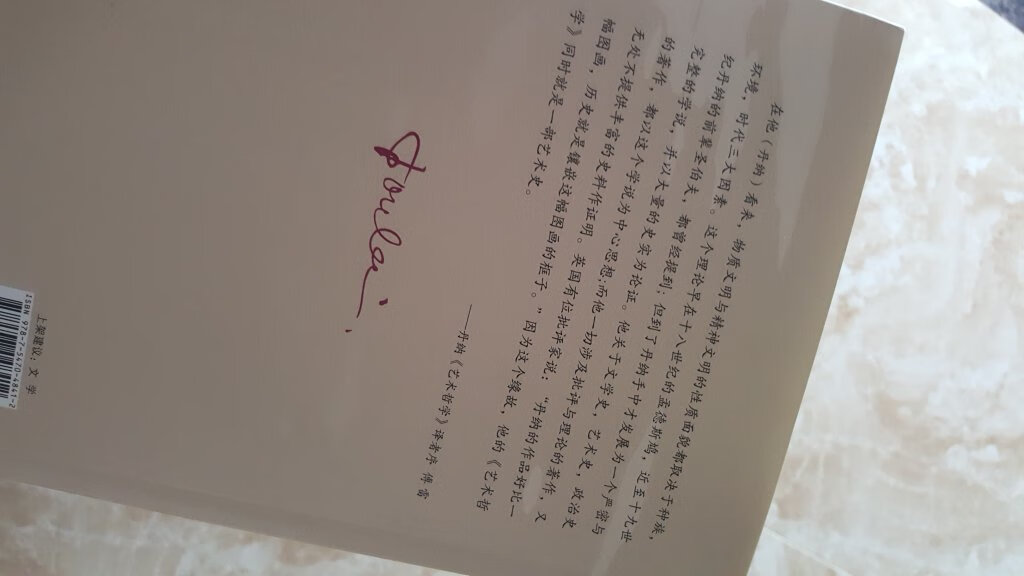 在他（丹纳）看来，物质文明与精神文明的性质面貌都取决于种族，
环境，时代三大因素。这个理论早在十八世纪的孟德斯鸠，近至十九世
纪丹纳的前辈圣伯夫，都曾经提到；但到了丹纳手中才发展为一个严密与
完整的学说，并以大量的史实为论证。他关于文学史，艺术史，政治史
的著作，都以这个学说为中心思想；而他一切涉及批评与理论的著作，又
无处不提供丰富的史料作证明。英国有位批评家说：“丹纳的作品好比一
幅图画，历史就是镶嵌这幅图画的框子。”因为这个缘故，他的《艺术哲
学》同时就是一部艺术史。
——丹纳《艺术哲学》译者序 傅雷
Foulei
上架建议：文学